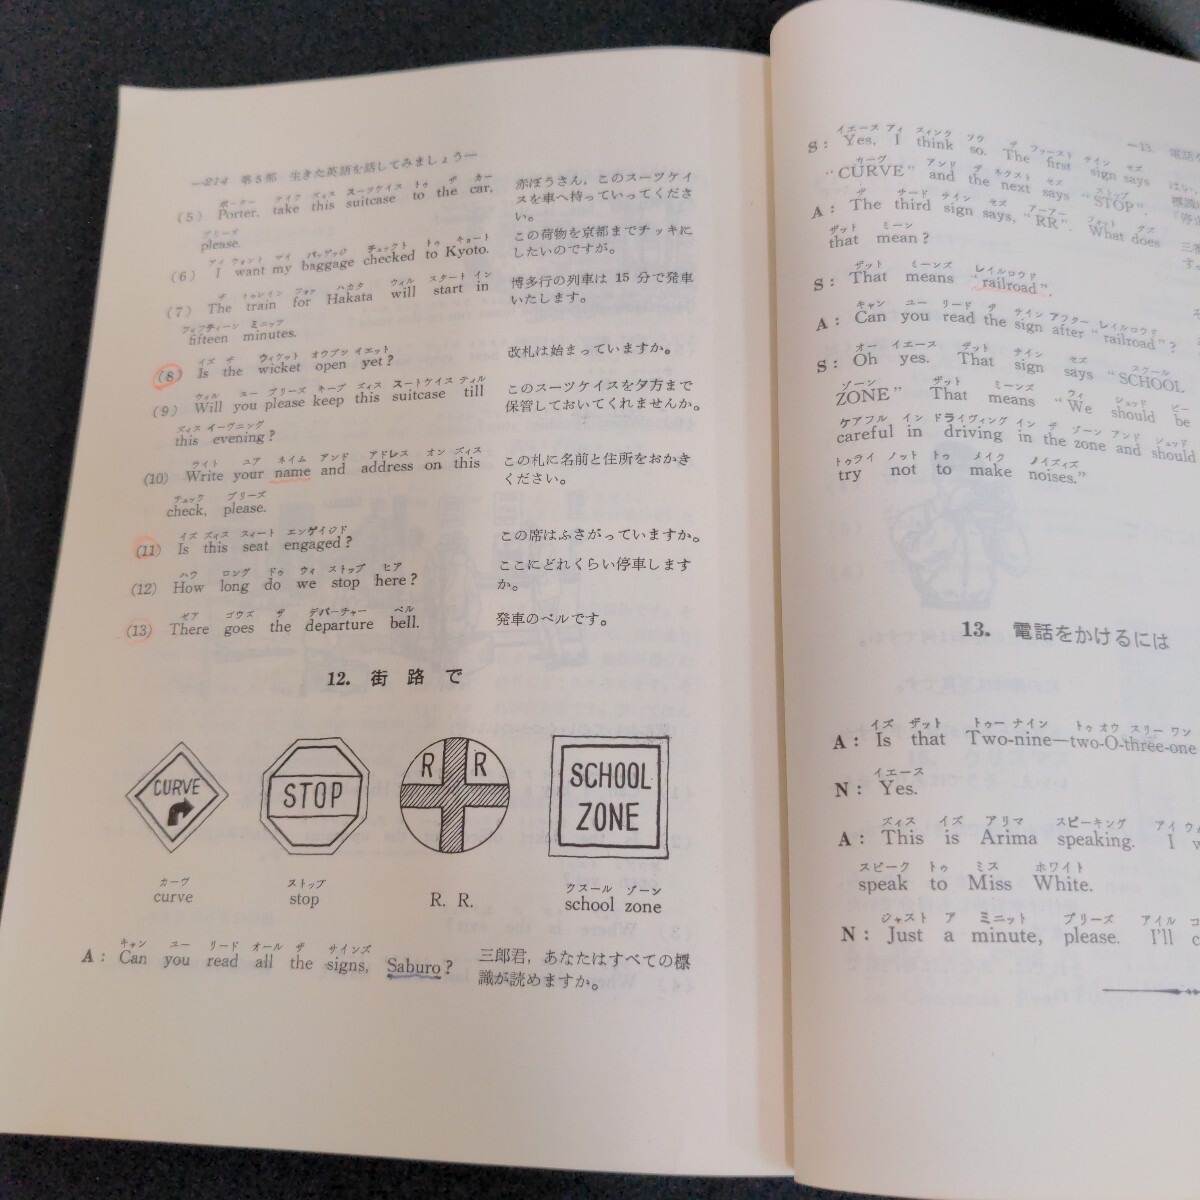 —214 第5部 生きた英語を話してみましょう—
ポーター テイク ズィス スーツケイス トゥ ザ カー
(5) Porter, take this suitcase to the car,
プリーズ
please.
赤ぼうさん，このスーツケイ
スを車へ持っていってくださ
い。
アイ ウォント マイ バッゲッジ チェックト トゥ キョート
(6) I want my baggage checked to Kyoto.
この荷物を京都までチッキに
したいのですが。
ザ トゥレイン フォァ ハカタ ウィル スタート イン
(7) The train for Hakata will start in
フィフティーン ミニッツ
fifteen minutes.
博多行の列車は 15 分で発車
いたします。
イズ ザ ウィケット オウプン イエット
(8) Is the wicket open yet?
改札は始まっていますか。
ウィル ユー プリーズ キープ ズィス スートケイス ティル
(9) Will you please keep this suitcase till
ズィス イーヴニング
this evening?
このスーツケイスを夕方まで
保管しておいてくれませんか。
ライト ユア ネイム アンド アドレス オン ズィス
(10) Write your name and address on this
チェック プリーズ
check, please.
この札に名前と住所をおかき
ください。
イズ ズィス スィート エンゲイジド
(11) Is this seat engaged?
この席はふさがっていますか。
ハウ ロング ドゥ ウィ ストップ ヒア
(12) How long do we stop here?
ここにどれくらい停車します
か。
ゼア ゴウズ ザ デパーチャー ベル
(13) There goes the departure bell.
発車のベルです。
12. 街路で
CURVE
STOP
R R
SCHOOL
ZONE
カーヴ
curve
ストップ
stop
R. R.
クスール ゾーン
school zone
キャン ユー リード オール ザ サインズ
A: Can you read all the signs, Saburo?
三郎君，あなたはすべての標
識が読めますか。
—13. 電話
イエース アイ スィンク ソウ ザ ファースト サイン セズ
S: Yes, I think so. The first sign says
カーヴ アンド ザ ネクスト セズ ストップ
"CURVE" and the next says "STOP".
ザ サード サイン セズ アーアー フォット ダズ
A: The third sign says, "RR". What does
ザット ミーン
that mean?
ザット ミーンズ レイルロウド
S: That means "railroad".
キャン ユー リード ザ サイン アフター レイルロウド
A: Can you read the sign after "railroad"?
オー イエース ザット サイン セズ スクール
S: Oh yes. That sign says "SCHOOL
ゾーン ザット ミーンズ ウィ シュッド ビー
ZONE" That means "We should be
ケアフル イン ドライヴィング イン ザ ゾーン アンド シュッド
careful in driving in the zone and should
トゥライ ノット トゥ メイク ノイズィズ
try not to make noises."
13. 電話をかけるには
イズ ザット トゥー ナイン トゥ オウ スリー ワン
A: Is that Two-nine—two-O-three-one
イエース
N: Yes.
ズィス イズ アリマ スピーキング アイ
A: This is Arima speaking. I
スピーク トゥ ミス ホワイト
speak to Miss White.
ジャスト ア ミニット プリーズ アイル
N: Just a minute, please. I'll